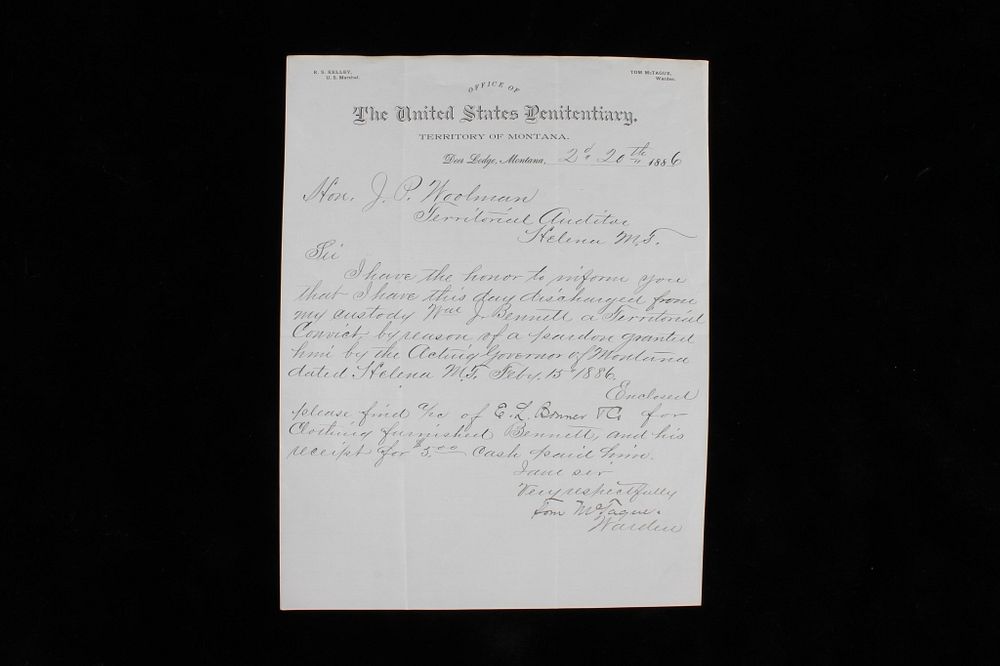 R. S. KELLEY,
U. S. Marshal.
TOM McTAGUE,
Warden.
OFFICE OF
The United States Penitentiary,
TERRITORY OF MONTANA.
Deer Lodge, Montana, 2d 20th 1886
Hon. J. P. Woolman
Territorial Auditor
Helena M.T.
Sir
I have the honor to inform you
that I have this day discharged from
my custody Wm J. Bennett a Territorial
Convict, by reason of a pardon granted
him by the Acting Governor of Montana
dated Helena M.T. Feby. 15" 1886.
Enclosed
please find a/c of E. L. Bonner & Co for
Clothing furnished Bennett, and his
receipt for $5.00 cash paid him.
I am sir
Very respectfully
Tom McTague.
Warden